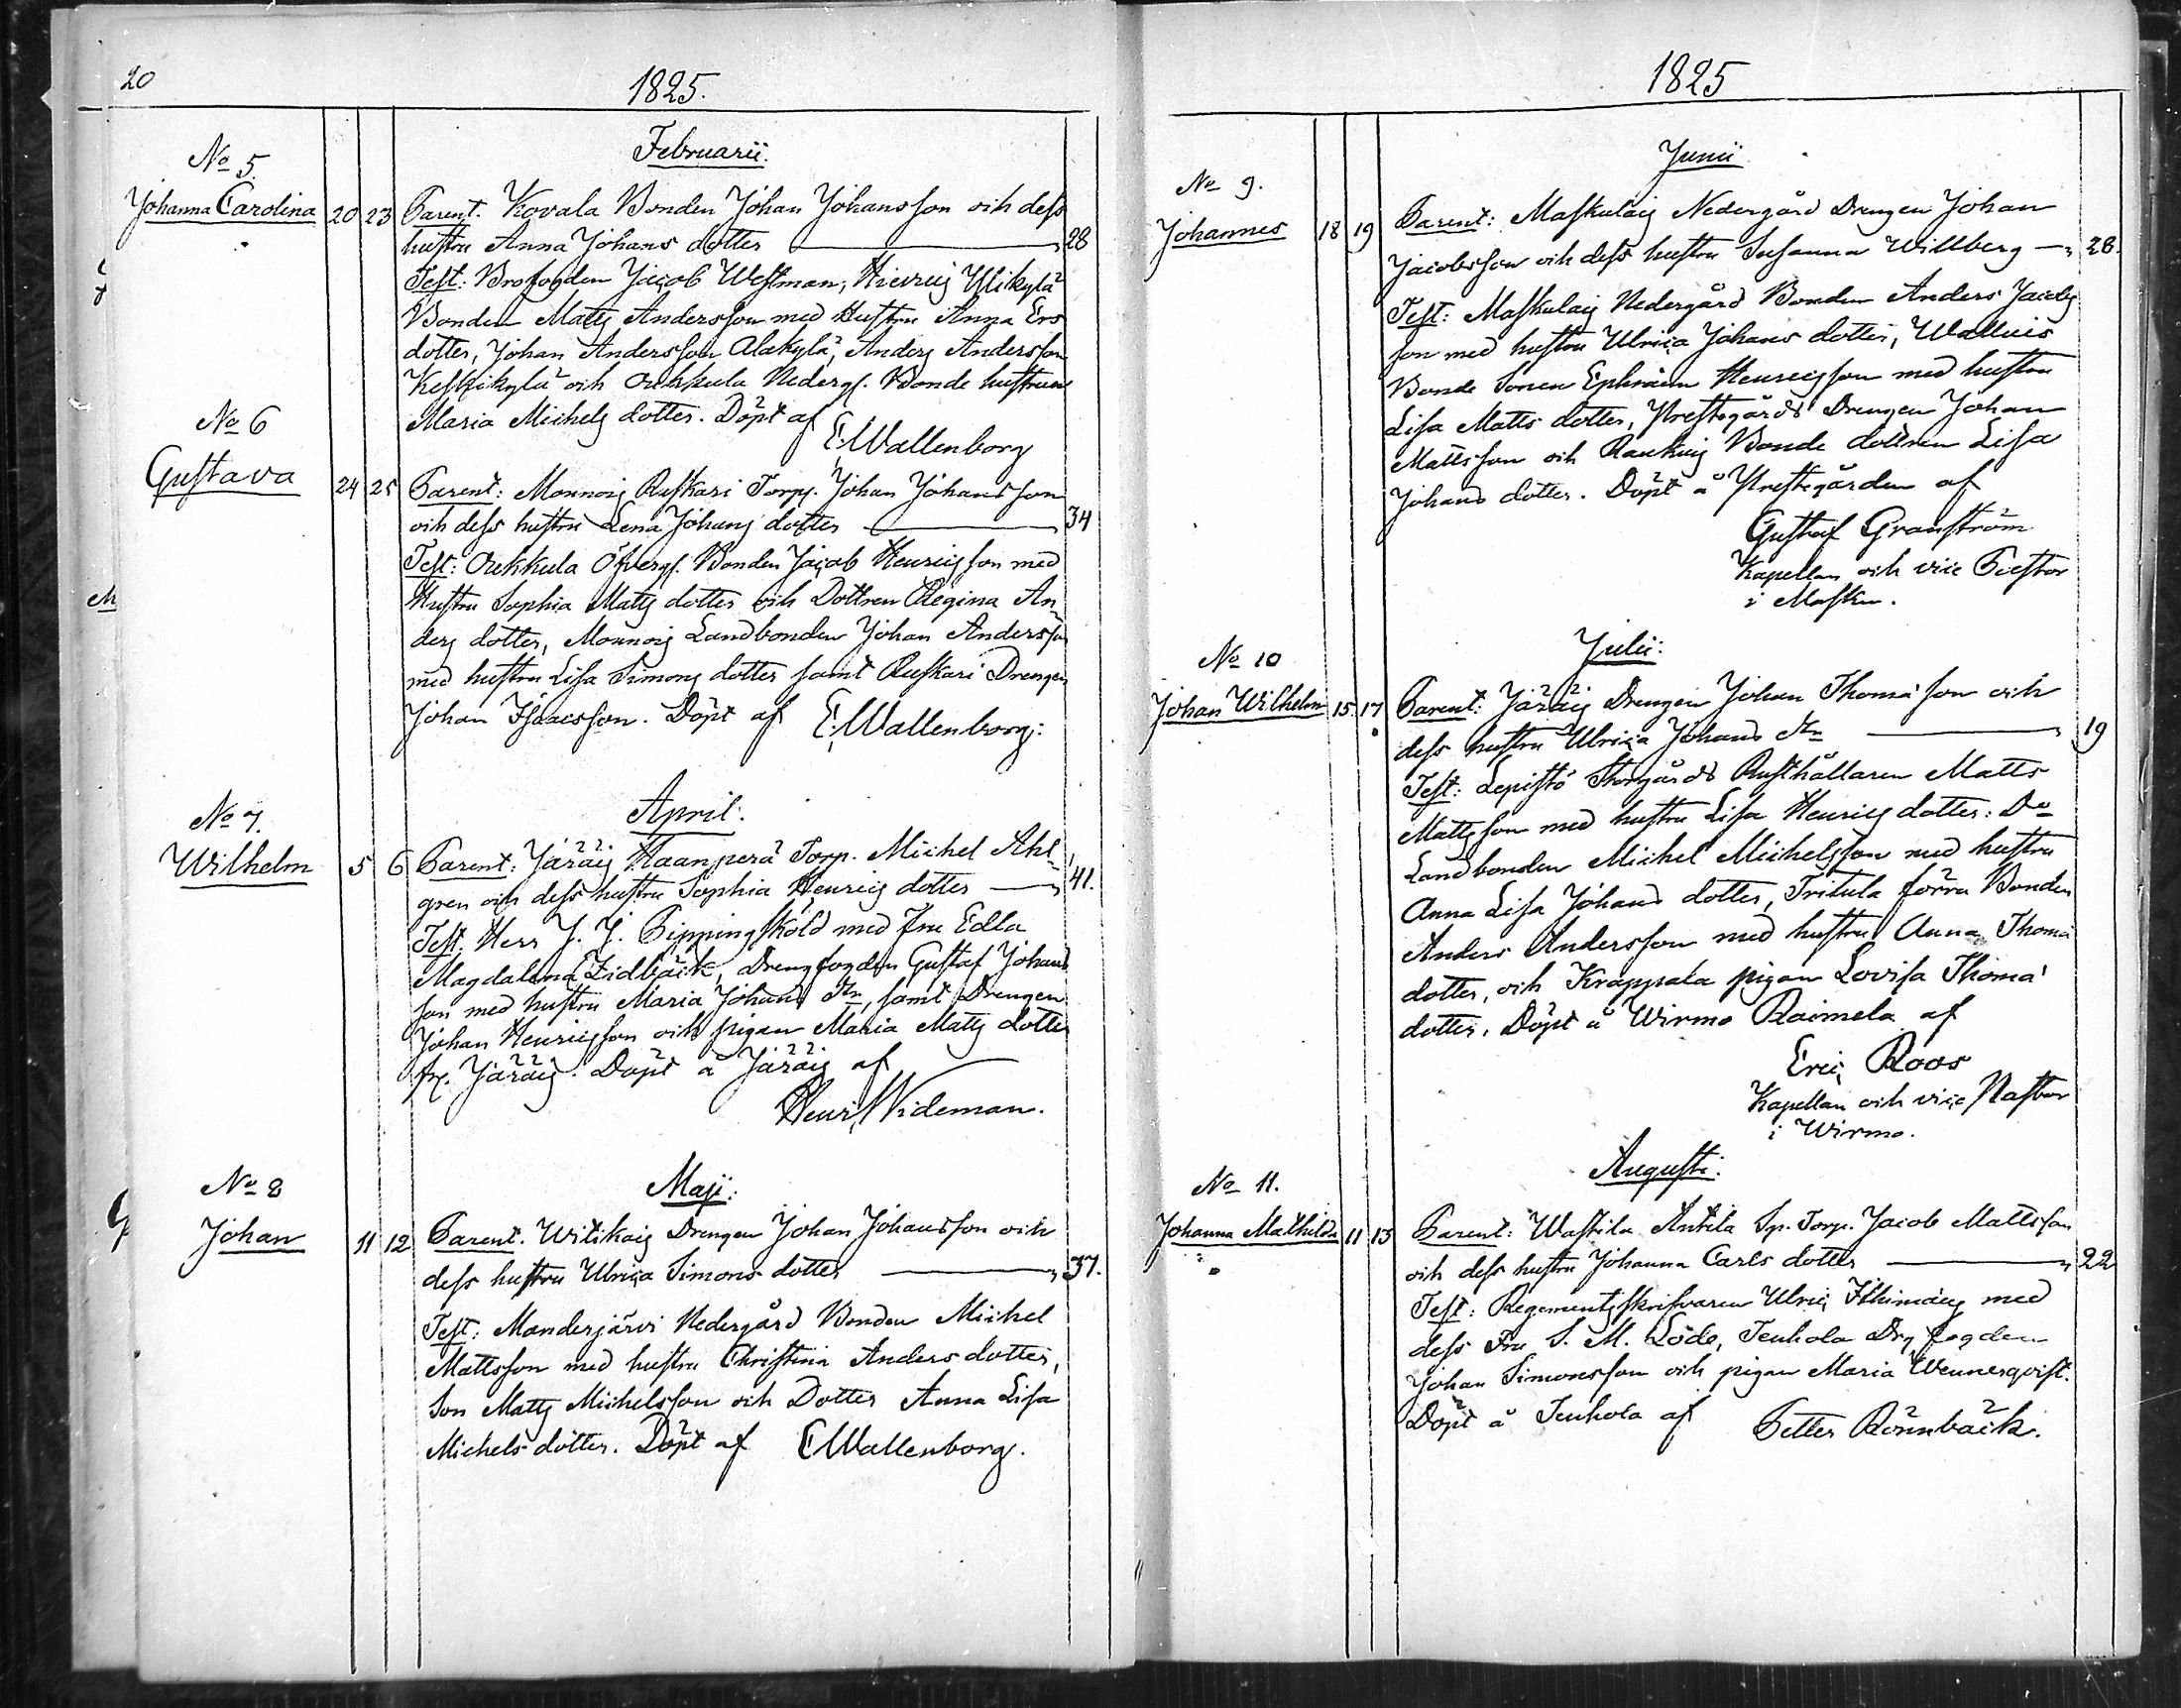 20
1825.
Februarii.
No 5.
Johanna Carolina 20 23 Parent. Kovala Bonden Johan Johansson och dess
hustru Anna Johans dotter 28
Test: Brofogden Jacob Westman, Hieroig Ylikylä
Bonden Matts Andersson med Hustru Anna Ers
dotter, Johan Andersson Alakylä, Anders Andersson
Keskikylä och Ouhkula Nederg. Bonde hustrun
Maria Michels dotter. Döpt af
E. Wallenborg
No 6
Gustava 24 25 Parent: Monnois Ruskari Torp. Johan Johansson
och dess hustru Lena Johans dotter 34
Test: Ouhkula Öfverg. Bonden Jacob Henricsson med
Hustru Sophia Matts dotter och Dottren Regina An
ders dotter, Monnois Landbonden Johan Andersson
med hustru Lisa Simons dotter samt Ruskari Drengen
Johan Isaacsson. Döpt af E. Wallenborg:
April:
No 7.
Wilhelm 5 6 Parent: Järäis Haanperä Torp. Michel Ahl
gren och dess hustru Sophia Henrics dotter 41.
Test. Herr J. J. Pippingsköld med Fru Edla
Magdalena Zidbäck, Drengfogden Gustaf Johans
son med hustru Maria Johans dr, samt Drengen
Johan Henricsson och pigan Maria Matts dotter
fr. Järäis. Döpt å Järäis af
Henr. Wideman.
Maji:
No 8
Johan 11 12 Parent. Witikais Drengen Johan Johansson och
dess hustru Ulrica Simons dotter 37.
Test: Manderjärvi Nedergård Bonden Michel
Mattsson med hustru Christina Anders dotter,
Son Matts Michelsson och Dotter Anna Lisa
Michels dotter. Döpt af E Wallenborg.
1825
Junii
No 9.
Johannes 18 19 Parent: Maskulais Nedergård Drengen Johan
Jacobsson och dess hustru Susanna Willberg 28.
Test: Maskulais Nedergård Bonden Anders Jacobs
son med hustru Ulrica Johans dotter, Walluis
Bonde Sonen Ephraim Henricsson med hustru
Lisa Matts dotter, Prestegårds Drengen Johan
Mattsson och Raukuis Bonde dottren Lisa
Johans dotter. Döpt å Prestegården af
Gustaf Granström
Kapellan och vice Pastor
i Masku.
Julii:
No 10
Johan Wilhelm 15 17 Parent: Järäis Drengen Johan Thomasson och
dess hustru Ulrica Johans dr 19
Test: Lepistö Storgårds Rusthållaren Matts
Mattsson med hustru Lisa Henrics dotter: Do
Landbonden Michel Michelsson med hustru
Anna Lisa Johans dotter, Tritula förra Bonden
Anders Andersson med hustru Anna Thomæ
dotter, och Krappala pigan Lovisa Thomæ
dotter. Döpt å Wirmo Raimela af
Eric Roos
Kapellan och vice Pastor
i Wirmo.
Augusti:
No 11.
Johanna Mathilda 11 13 Parent: Wastila Antila Sp. Torp. Jacob Mattsson
och dess hustru Johanna Carls dotter 22
Test: Regementsskrifvaren Ulric Ithimæus med
dess Fru S. M. Löde, Tenhola Drg fogden
Johan Simonsson och pigan Maria Wennerqvist.
Döpt å Tenhola af Petter Rönnbäck.